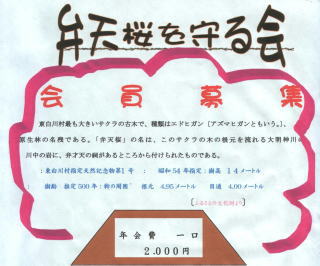 弁天桜を守る会
会員募集
東白川村最も大きいサクラの古木で、種類はエドヒガン（アズマヒガンともいう）、
原生林の名残である。「弁天桜」の名は、このサクラの木の根元を流れる大明神川の
川中の岩に、弁才天の祠があるところから付けられたものである。
：東白川村指定天然記念物第1号　：　昭和54年指定：樹高　14メートル
：樹齢　推定500年：幹の周囲　根元　4.95メートル　目通　4.00メートル
［ふるさとの文化財より］
年会費　一口
2.000円